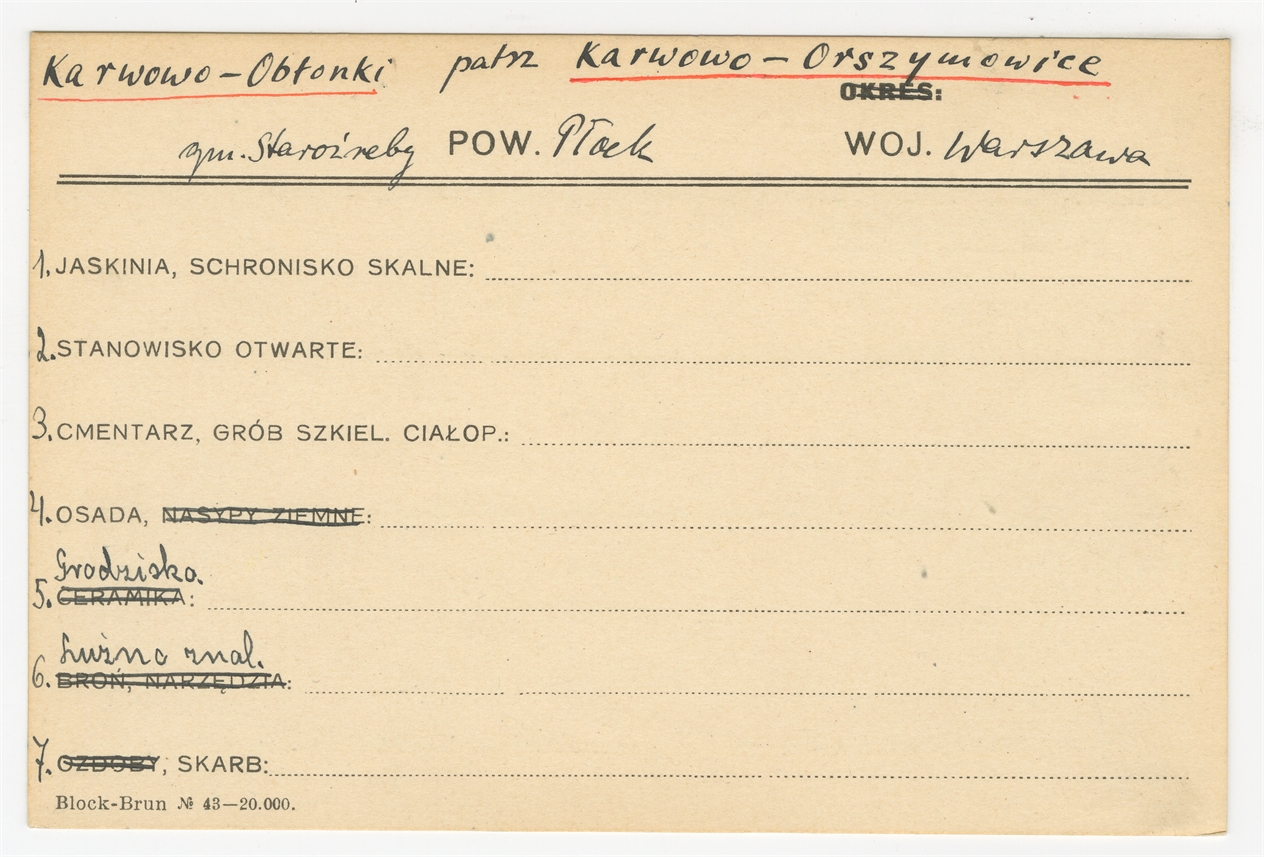 Karwowo-Obłonki patrz Karwowo-Orszymowice
OKRES:
gm. Staroźreby POW. Płock WOJ. Warszawa
1. JASKINIA, SCHRONISKO SKALNE:
2. STANOWISKO OTWARTE:
3. CMENTARZ, GRÓB SZKIEL. CIAŁOP.:
4. OSADA, NASYPY ZIEMNE:
Grodzisko.
5. CERAMIKA:
Luźne znal.
6. BROŃ, NARZĘDZIA:
7. OZDOBY, SKARB:
Block-Brun № 43—20.000.